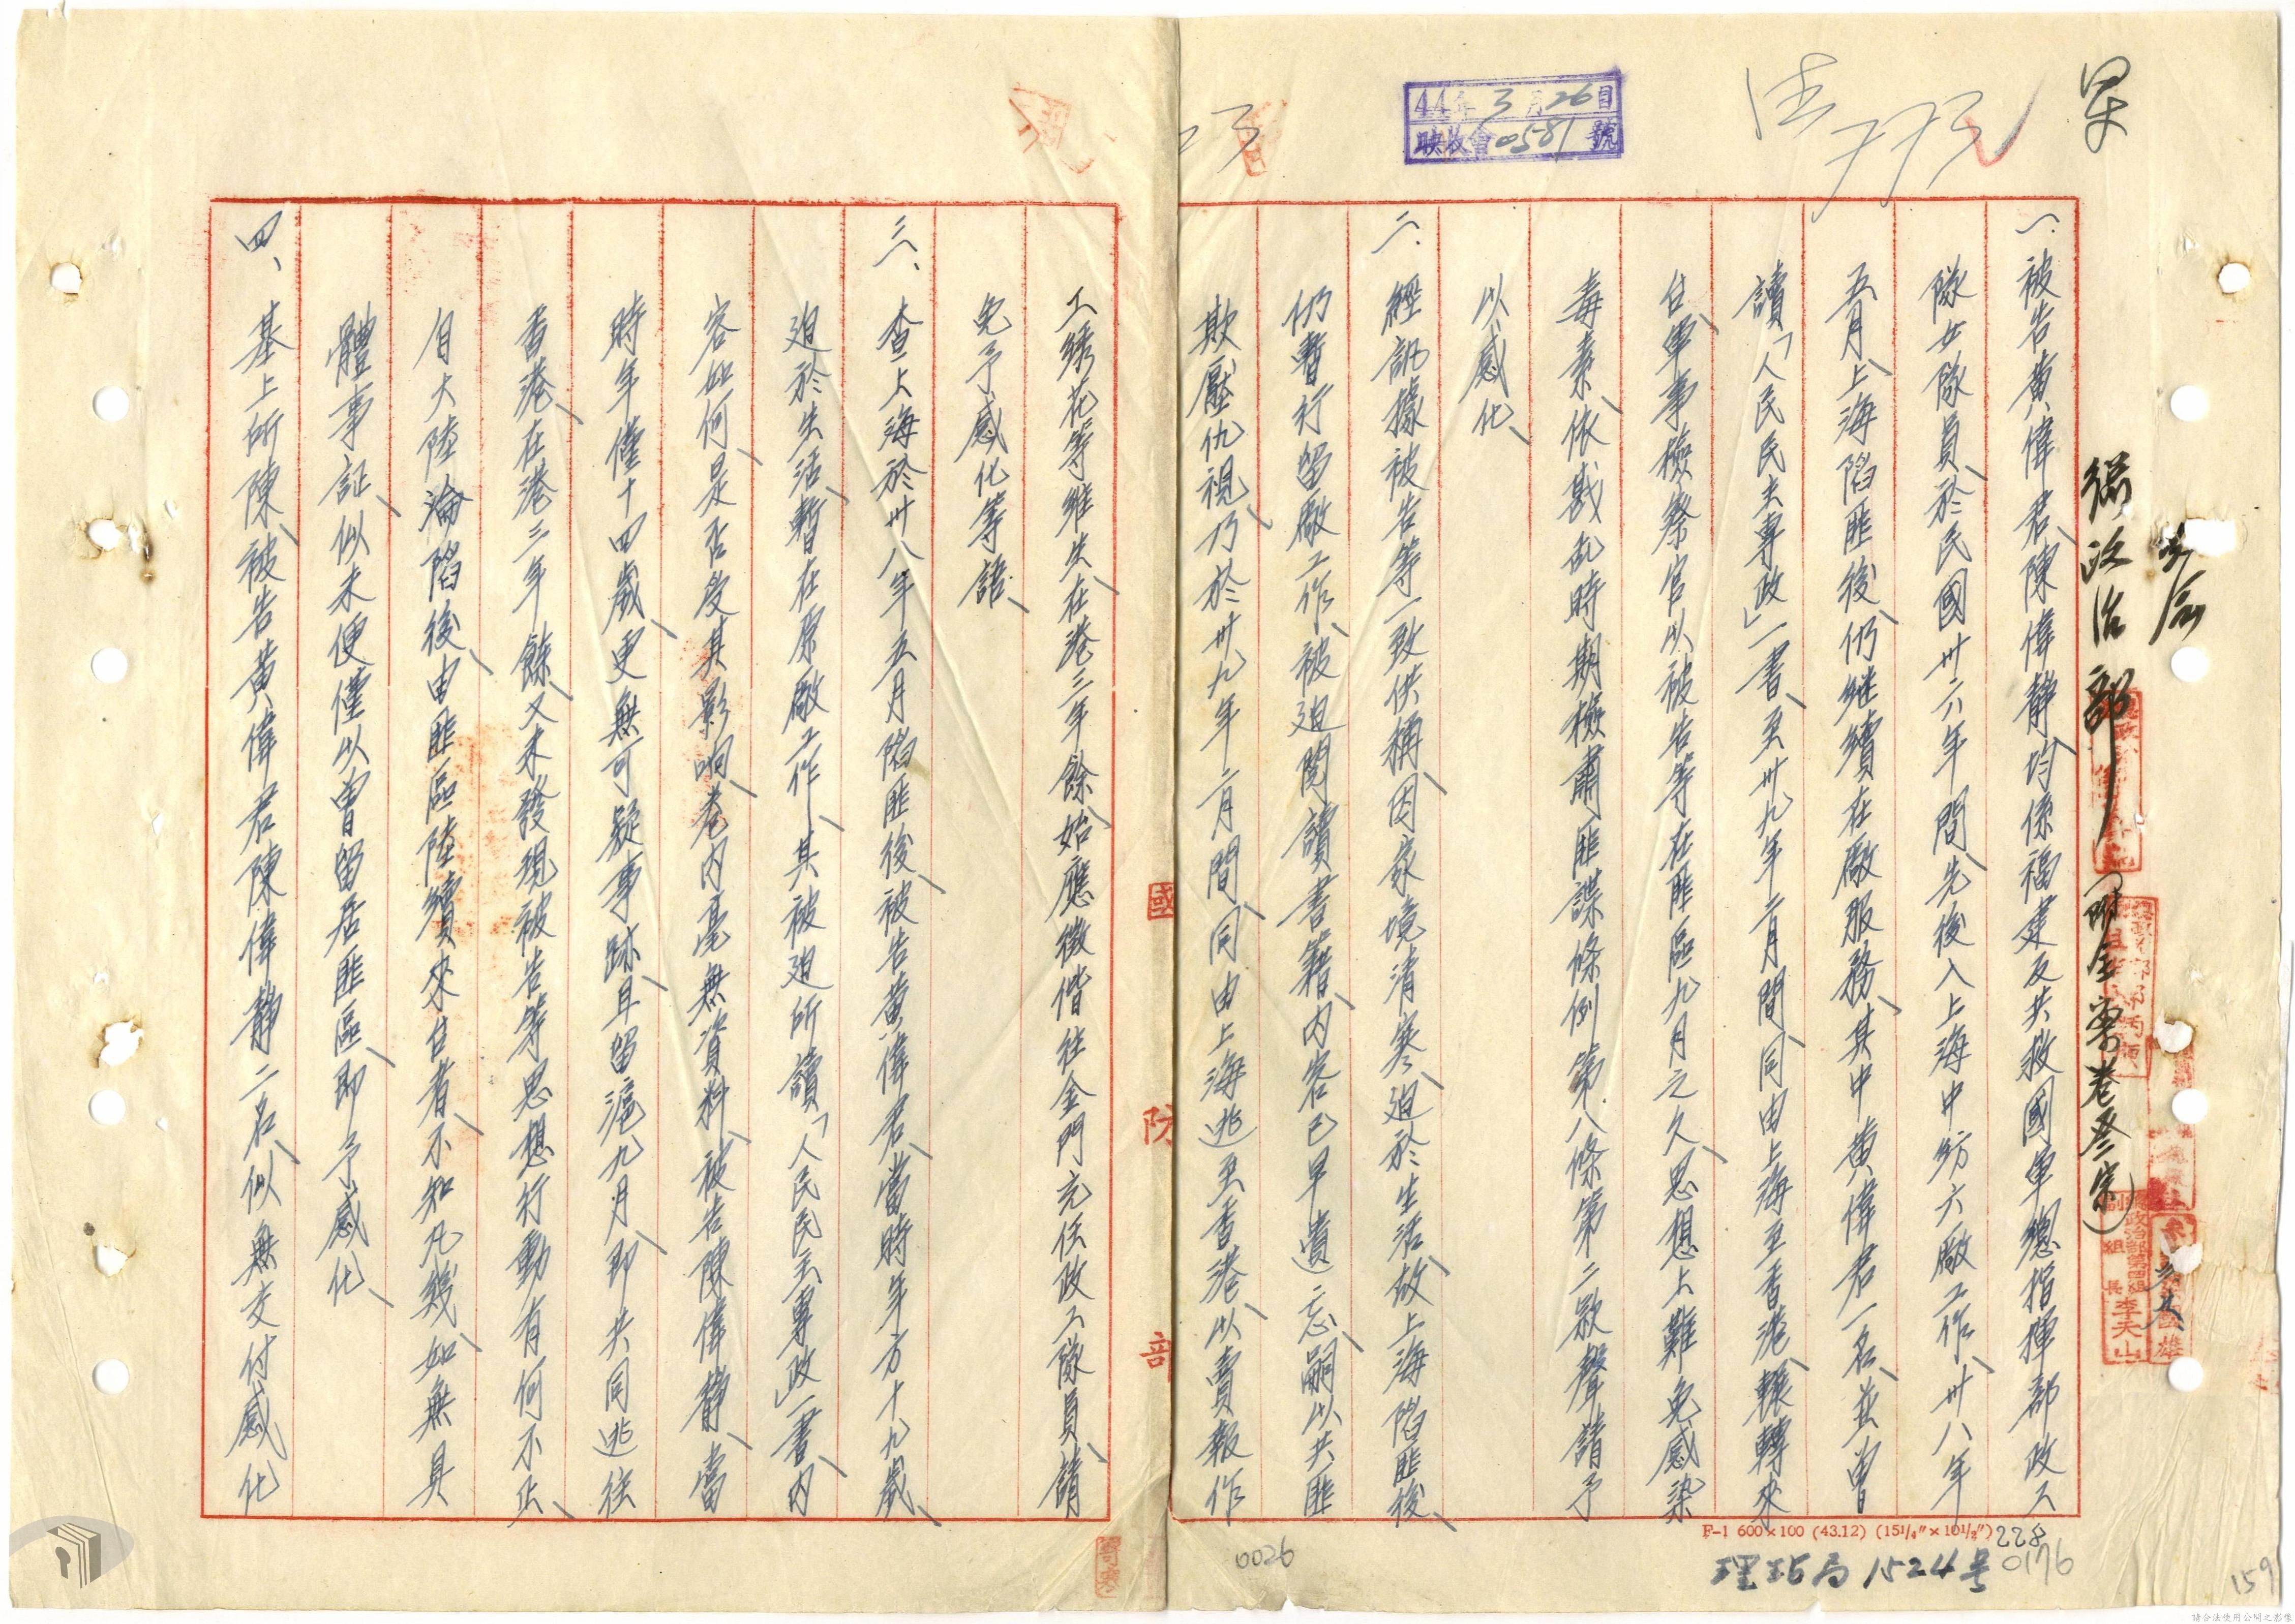 44年3月26日
0581號
總政治部
(附全案卷叁宗)
一、被告黃偉君、陳偉靜、均係福建反共救國軍總指揮部政工
隊女隊員、於民國卅六年間、先後入上海中紡六廠工作、卅八年
五月、上海陷匪後、仍継續在廠服務、其中黃偉君一名、並曾
讀「人民民主專政」一書、至卅九年二月間、同由上海至香港、輾轉來
台、軍事檢察官以被告等在匪區九月之久、思想上難免感染
毒素、依戡乱時期檢肅匪諜條例第八條第二款聲請予
以感化、
二、經訊據被告等一致供稱、因家境清寒、迫於生活、故上海陷匪後、
仍暫行留廠工作、被迫閱讀書籍、內容已早遺忘、嗣以共匪
欺壓仇視、乃於卅九年二月間、同由上海逃至香港、以賣報作
工綉花等維生、在港三年餘、始應徵偕往金門充任政工隊員、請
免予感化等語、
三、查上海於卅八年五月陷匪後、被告黃偉君、當時年方十九歲、
迫於生活、暫在原廠工作、其被迫所讀「人民民主專政」一書、內
容如何、是否受其影响、卷內毫無資料、被告陳偉靜、當
時年僅十四歲、更無可疑事跡、且留滬九月、即共同逃往
香港、在港三年餘、又未發現被告等思想行動有何不正、
自大陸淪陷後、由匪區陸續來台者、不知凡幾、如無具
體事証、似未便僅以曾留居匪區、即予感化、
四、基上所陳、被告黃偉君陳偉靜二名、似無交付感化
國防部
F-1 600×100 (43.12) (15¼"×10½")
228
0176
0026
1524号
159
組長 李天山
請合法使用公開之影像